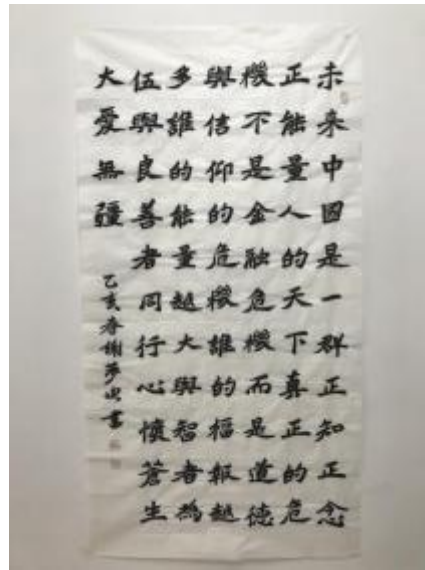 未来中國是一群正知正念
正能量人的天下真正的危
機不是金融危機而是道德
與信仰的危機誰的福報越
多誰的能量越大與智者為
伍與良善者同行心懷蒼生
大愛無疆
乙亥春謝夢書